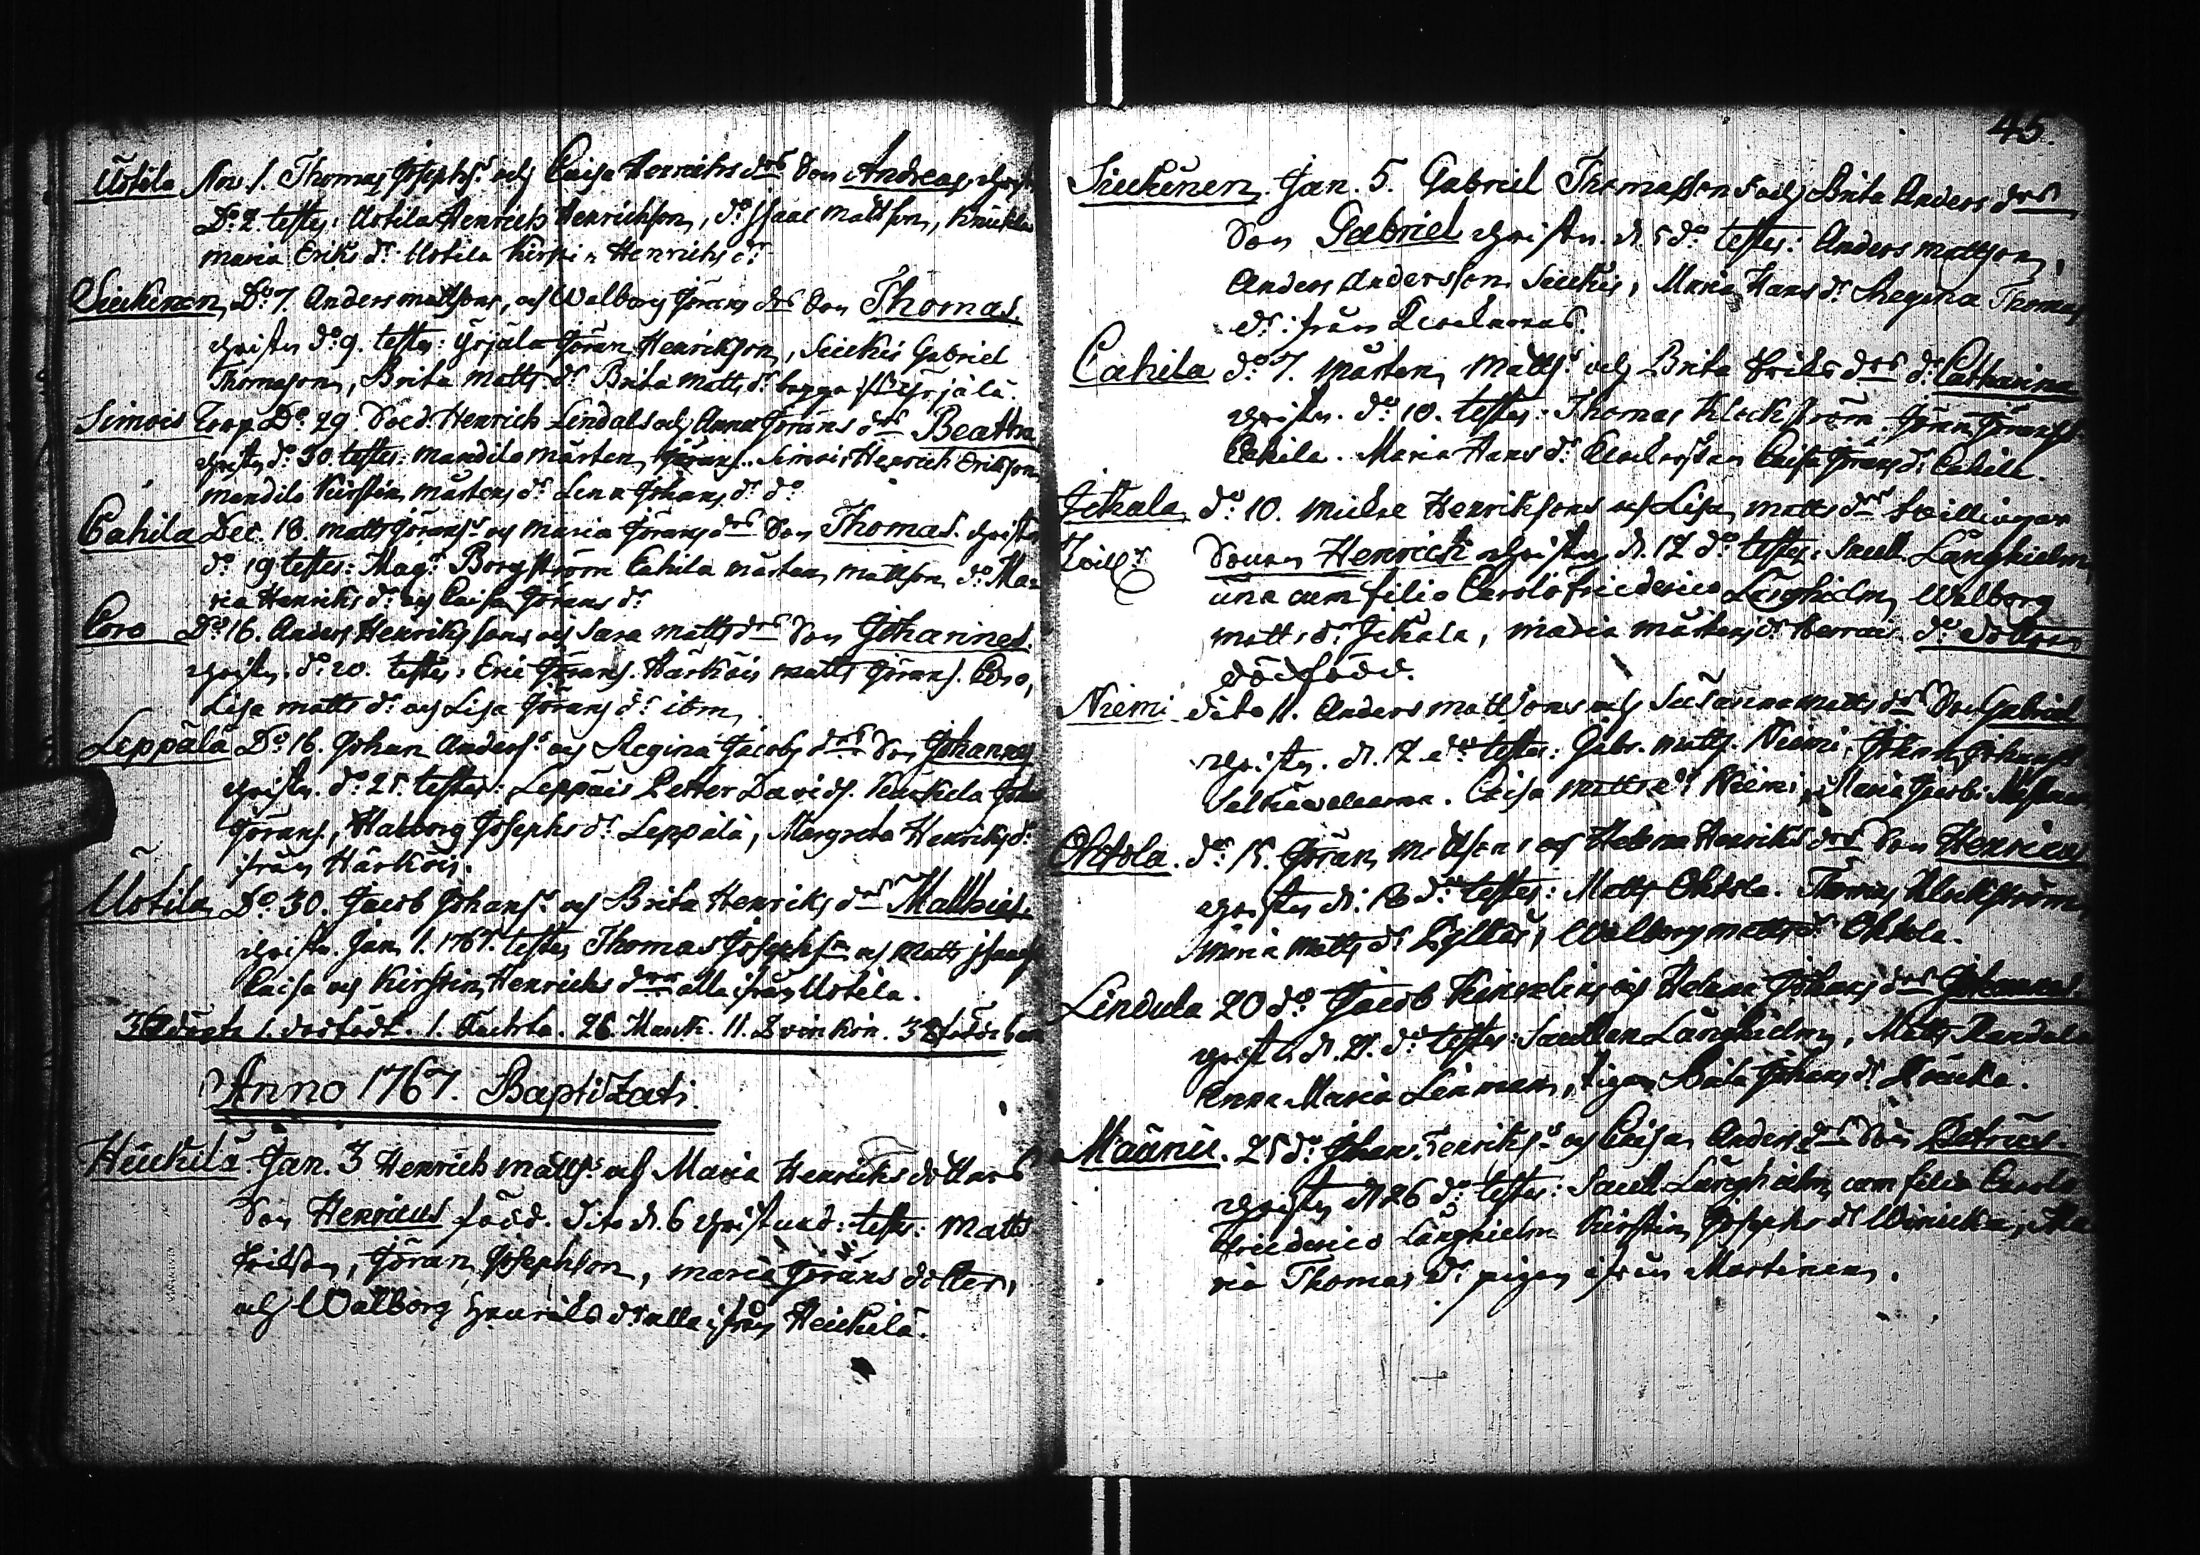 Uotila Nov. 1. Thomas Josephs. och Caisa Henrichs drs Son Andreas christ
Do 2. testes: Uotila Henrich Henrichson, do Isaac Mattson, Knuutila
Maria Eriks dr Uotila Kirstin Henrichs dr
Siukonen, Do 7. Anders Mattsons, och Walborg Jörans drs Son Thomas.
christn do 9. testes: Yrjälä Jöran Henrikson, Siukois Gabriel
Thomason, Brita Matts dr Brita Matts dr begge ifr. Yrjälä.
Simois Torp Do 29 Sold. Henrich Lindals och Anna Jörans drs Beatha
christn do 30. testes: Mandila Mårten Jörans. Simois Henrich Erikson,
Mandila Kirstin Mårtens dr Lena Johans dr do
Cahila Dec. 18. Matts Jörans. och Maria Jörans drs Son Thomas. christn
do 19 testes: Mag. Borgström Cahila Mårten Mattson do Ma-
ria Henriks dr och Caisa Jörans dr
Coro Do 16. Anders Henriks sons och Sara Matts drs Son Johannes.
christn. do 20. testes: Eric Jörans. Härköis Matts Jörans. Coro,
Lisa Matts dr och Lisa Jörans dr item
Leppälä Do 16. Johan Anders. och Regina Jacobs drs Son Johannes
christn. do 25. testes: Leppäis Petter Davids. Joha
Jörans., Walborg Josephs dr Leppälä, Margreta Henriks dr
från Härköis.
Uotila Do 30. Jacob Johans. och Brita Henriks drs Matthias.
christn. Jan. 1. 1767. testes Thomas Josephson och Matts Isaacs
Caisa och Kirstin Henrichs drar alla ifrån Uotila.
1. dödfödt. 1. 26 Mank. 11. Qvinkön. 38 födde barn
Anno 1767. Baptizati.
Heickilä. Jan. 3 Henrich Matts. och Maria Henrichs dotters
Son Henricus född. dito d. 6 christnad: testes: Matts
Erikson, Jöran Josephson, Maria Jörans dotter,
och Walborg Henriks dr alla ifrån Heickilä.
45.
Siukonen, Jan. 5. Gabriel Thomassons och Brita Anders drs
Son Gabriel christn. d. 5 do testes: Anders Mattson,
Anders Andersson Siukois, Maria Hans dr Regina Thomas
dr: från
Cahila do 7. Mårten Matts. och Brita Eriks drs dr Catharina
christn. do 10. testes: Thomas Klockström. Jöran Jörans
Cahila. Maria Hans dr Caisa Jörans dr Cahila.
Jthala do 10. Michel Henriksons och Lisa Matts drs tvillingar
Tvill. Sonen Henrich christn d. 12 do testes: Lieut. Långhielm
una cum filio Carolo Friederico Långhielm, Walborg
Matts dr Jthala, Maria Mårtens dr do dottren
dödfödd.
Niemi dito 11. Anders Mattsons och Susanna Matts drs Son Gabriel
christn. d. 12 do testes: Gabr. Matts. Niemi, Johan Johans
. Caisa Matts dr Niemi, Maria Jacobs
Ohtola. do 15. Jöran Mattsons och Helena Henriks drs Son Henricus
christn d: 18 do testes: Matts Ohtola. Thomas Klockström
Maria Matts dr Walborg Matts dr Ohtola.
Lindula 20 do Jacob och Helena Johans drs Johannes.
christn. d. 21. do testes: Långhielm, Matts
Anna Maria pigan Brita Johans dr
Määnü. 25 do Johan Henriks. och Caisa Anders drs Son Petrus.
christn d. 26 do testes: Långhielm cum filio Carolo
Friederico Långhielm Kirstin Josephs dr Ma-
ria Thomas dr pigan ifrån Martinen.